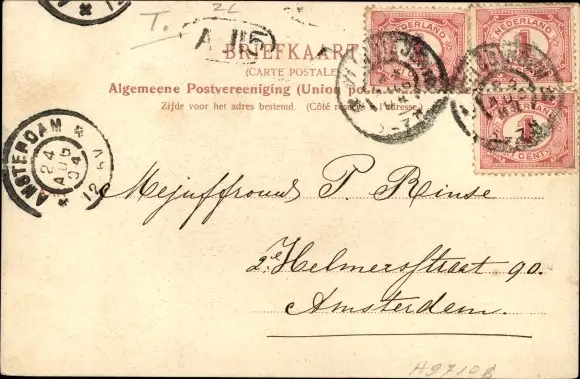 T. 2L
A 115
BRIEFKAART
(CARTE POSTALE)
Algemeene Postvereeniging (Union pos
Zijde voor het adres bestemd. (Côté rés l'adresse)
NEDERLAND
1
NEDERLAND
1
NEDERLAND
1
CENT
AMSTERDAM
24
AUG
04
12
Mejuffrouw P. Rinse
2e Helmersstraat 90.
Amsterdam.
H9710B